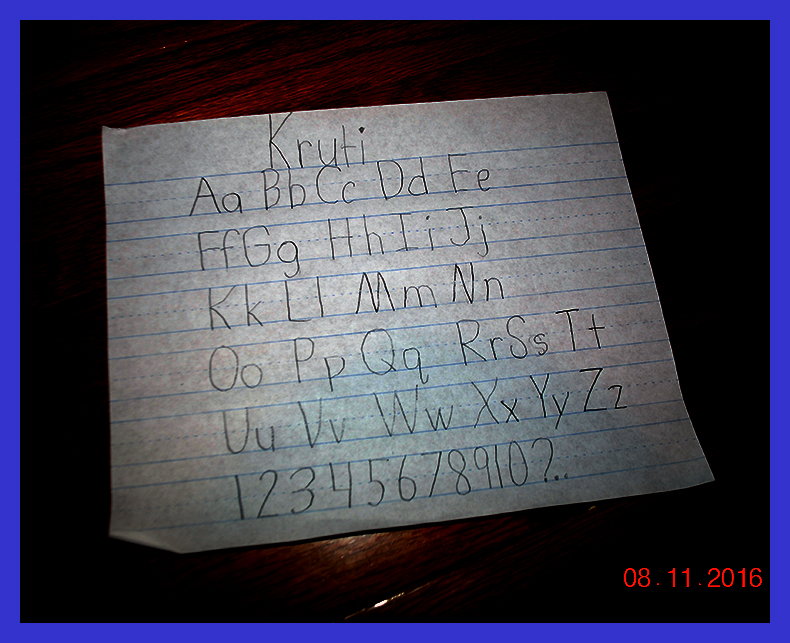 Kruti
Aa Bb Cc Dd Ee
Ff Gg Hh Ii Jj
Kk Ll Mm Nn
Oo Pp Qq Rr Ss Tt
Uu Vv Ww Xx Yy Zz
12345678910?..
08.11.2016